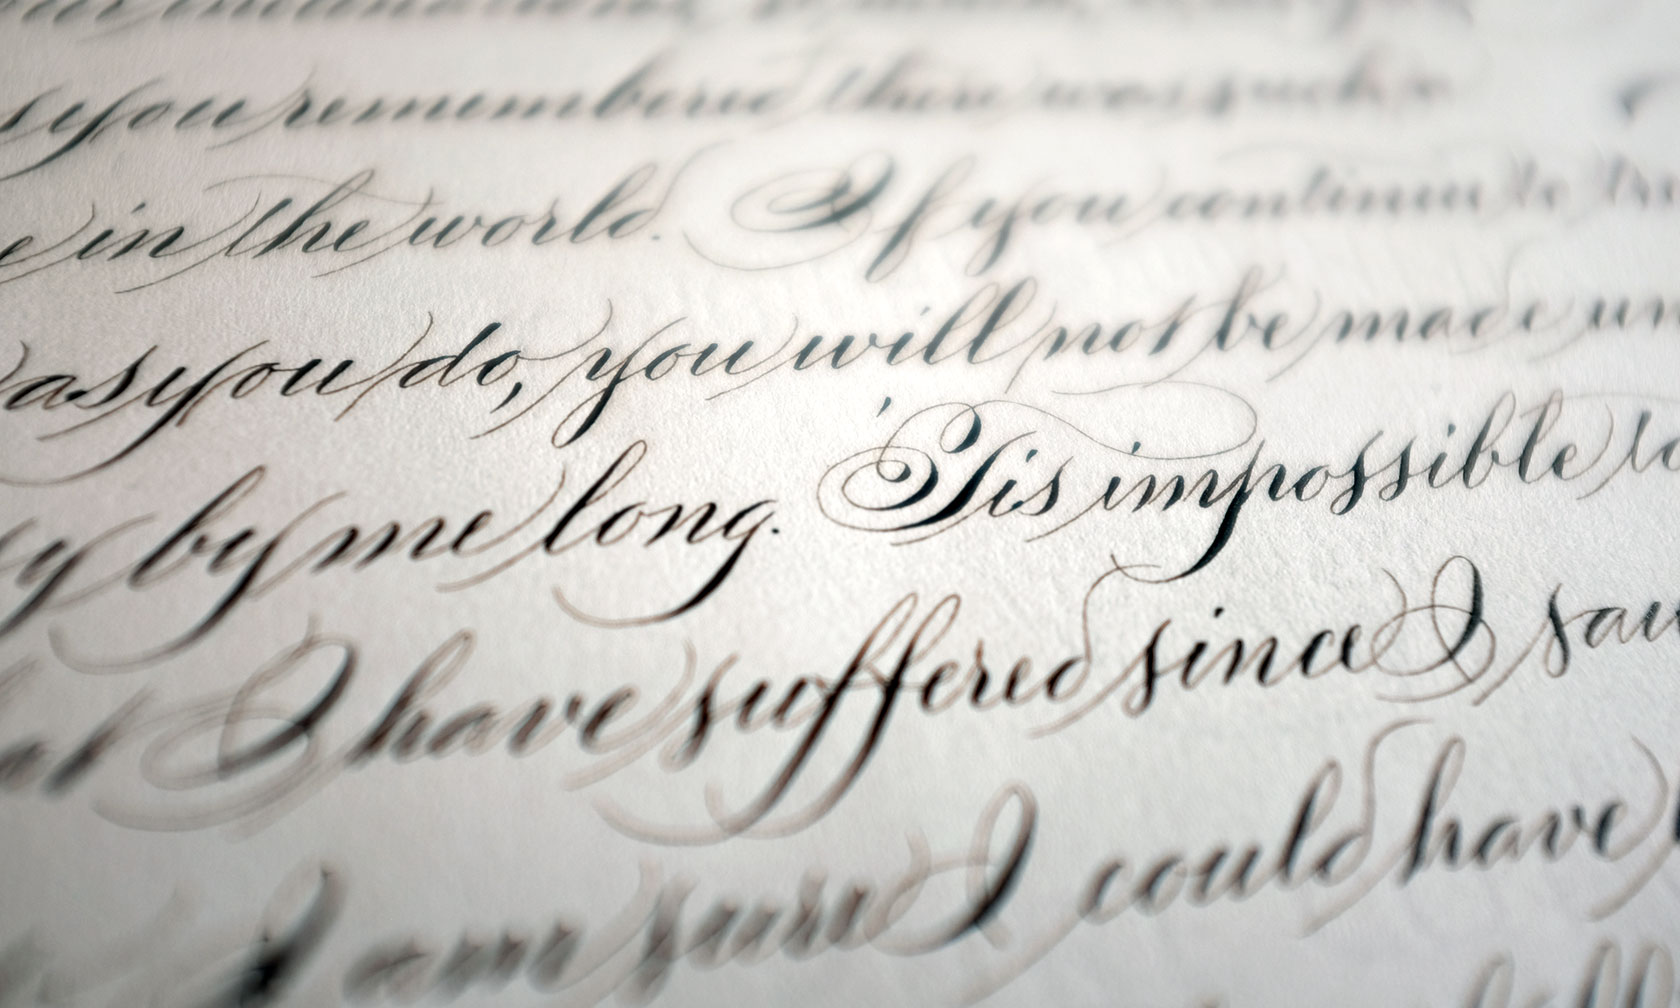 you remembered there was such a
in the world. If you continue to
as you do, you will not be made un
y by me long. 'Tis impossible to
I have suffered since I saw
I am sure I could have